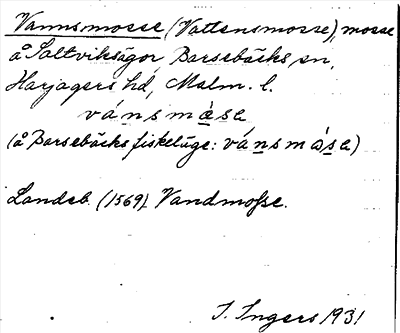 Vannsmosse (Vattensmosse), mosse
å Saltviksägor, Barsebäcks sn,
Harjagers hd, Malm. l.
vánsmåsa
(å Barsebäcks fiskeläge: vánsmåsa)
Landeb. (1569) Vandmosse.
I. Ingers 1931